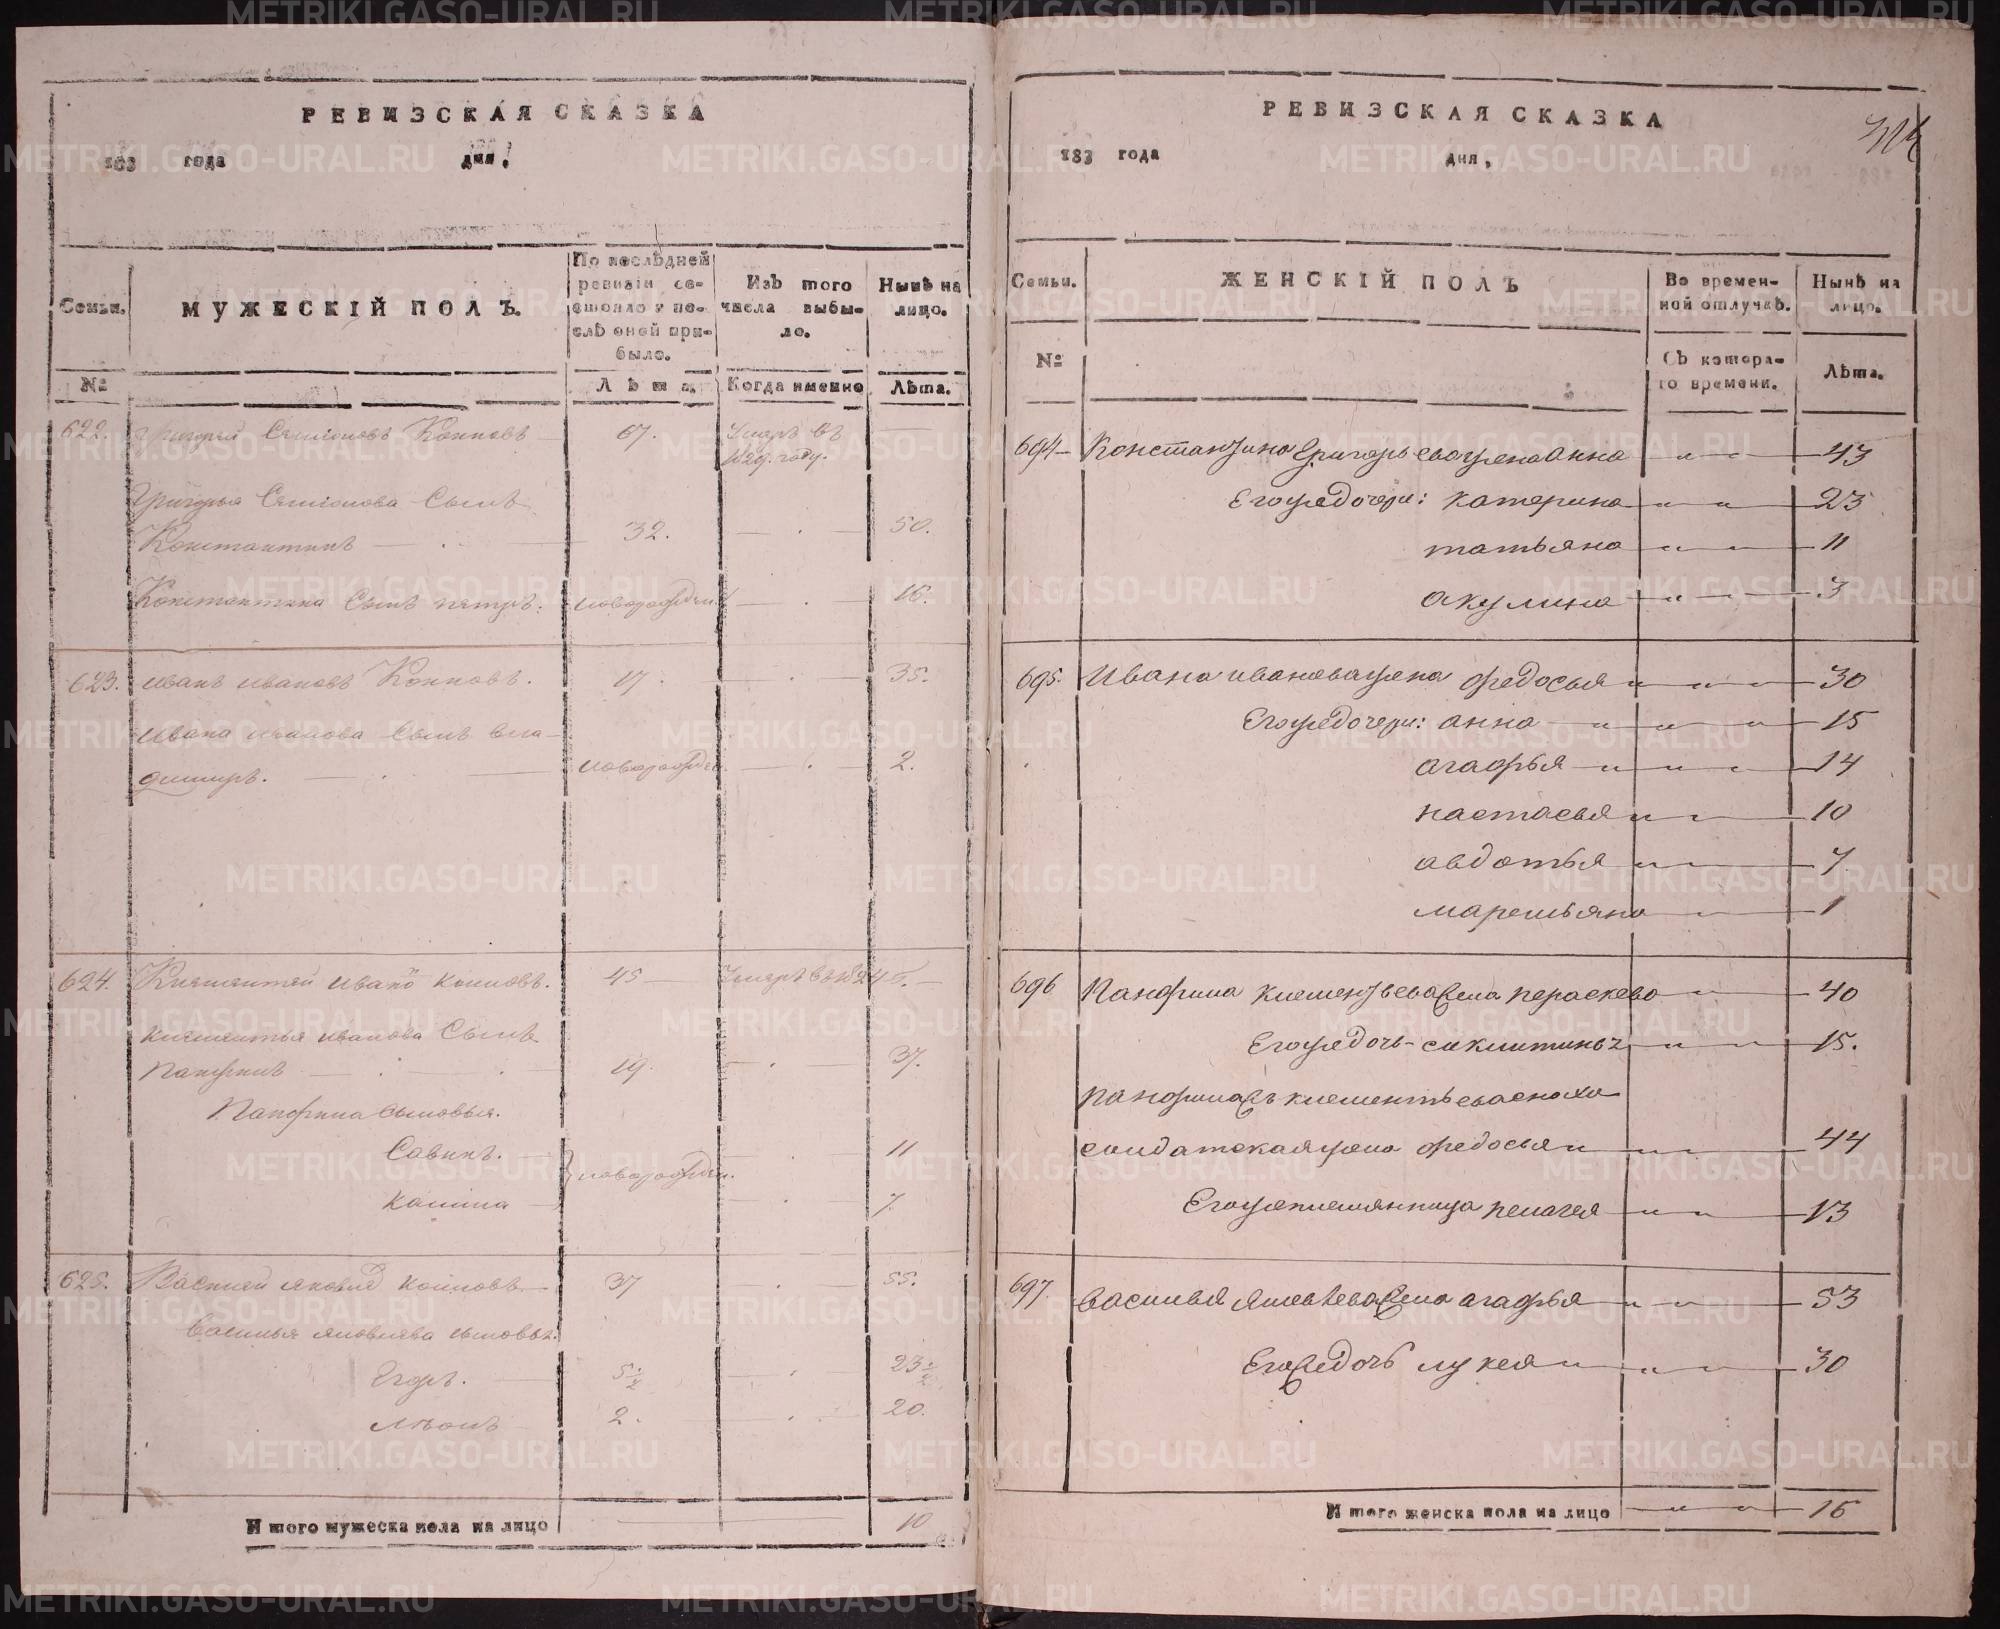 РЕВИЗСКАЯ СКАЗКА
183 года дня,
Семьи. МУЖЕСКІЙ ПОЛЪ. По послѣдней ревизіи состояло и послѣ оной прибыло. Изъ того числа выбыло. Нынѣ на лицо.
№ Лѣта. Когда именно Лѣта.
622. Григорей Семіоновъ Конновъ 67. Умеръ въ
1829. году.
Григорья Семіонова Сынъ
Константинъ 32. 50.
Константина Сынъ петръ: новорожден 16.
623. иванъ ивановъ Конновъ. 17. 35.
ивана иванова Сынъ вла-
димиръ. новорожден 2.
624. Клементей ивано Конновъ. 45 Умеръ в 1824 г.
клементья иванова Сынъ
Панфилъ 19. 37.
Панфила Сыновья.
Савинъ. 11
новорожден.
калина 7.
625. Василей яковле Конновъ 37 55.
Василья яковлева сыновья.
Егоръ. 5 1/2 23 1/2
лѣонъ 2. 20.
И того мужеска пола на лицо 10
РЕВИЗСКАЯ СКАЗКА
183 года дня,
Семьи. ЖЕНСКІЙ ПОЛЪ Во временной отлучкѣ. Нынѣ на лицо.
№ Съ котораго времени. Лѣта.
694 Константина Григорьева жена Анна 43
Его же дочери: катерина 23
татьяна 11
акулина 3
695. Ивана иванова жена федосья 30
Его же дочери: анна 15
агафья 14
настасья 10
авдотья 7
маремьяна 1
696 Панфила клементьева жена пераскева 40
Его же дочь 15.
панфила клементьева сноха
солдатская жена федосья 44
Его же племянница пелагея 13
697. василья яковлева жена агафья 53
Его же дочь лукея 30
И того женска пола на лицо 16
METRIKI.GASO-URAL.RU